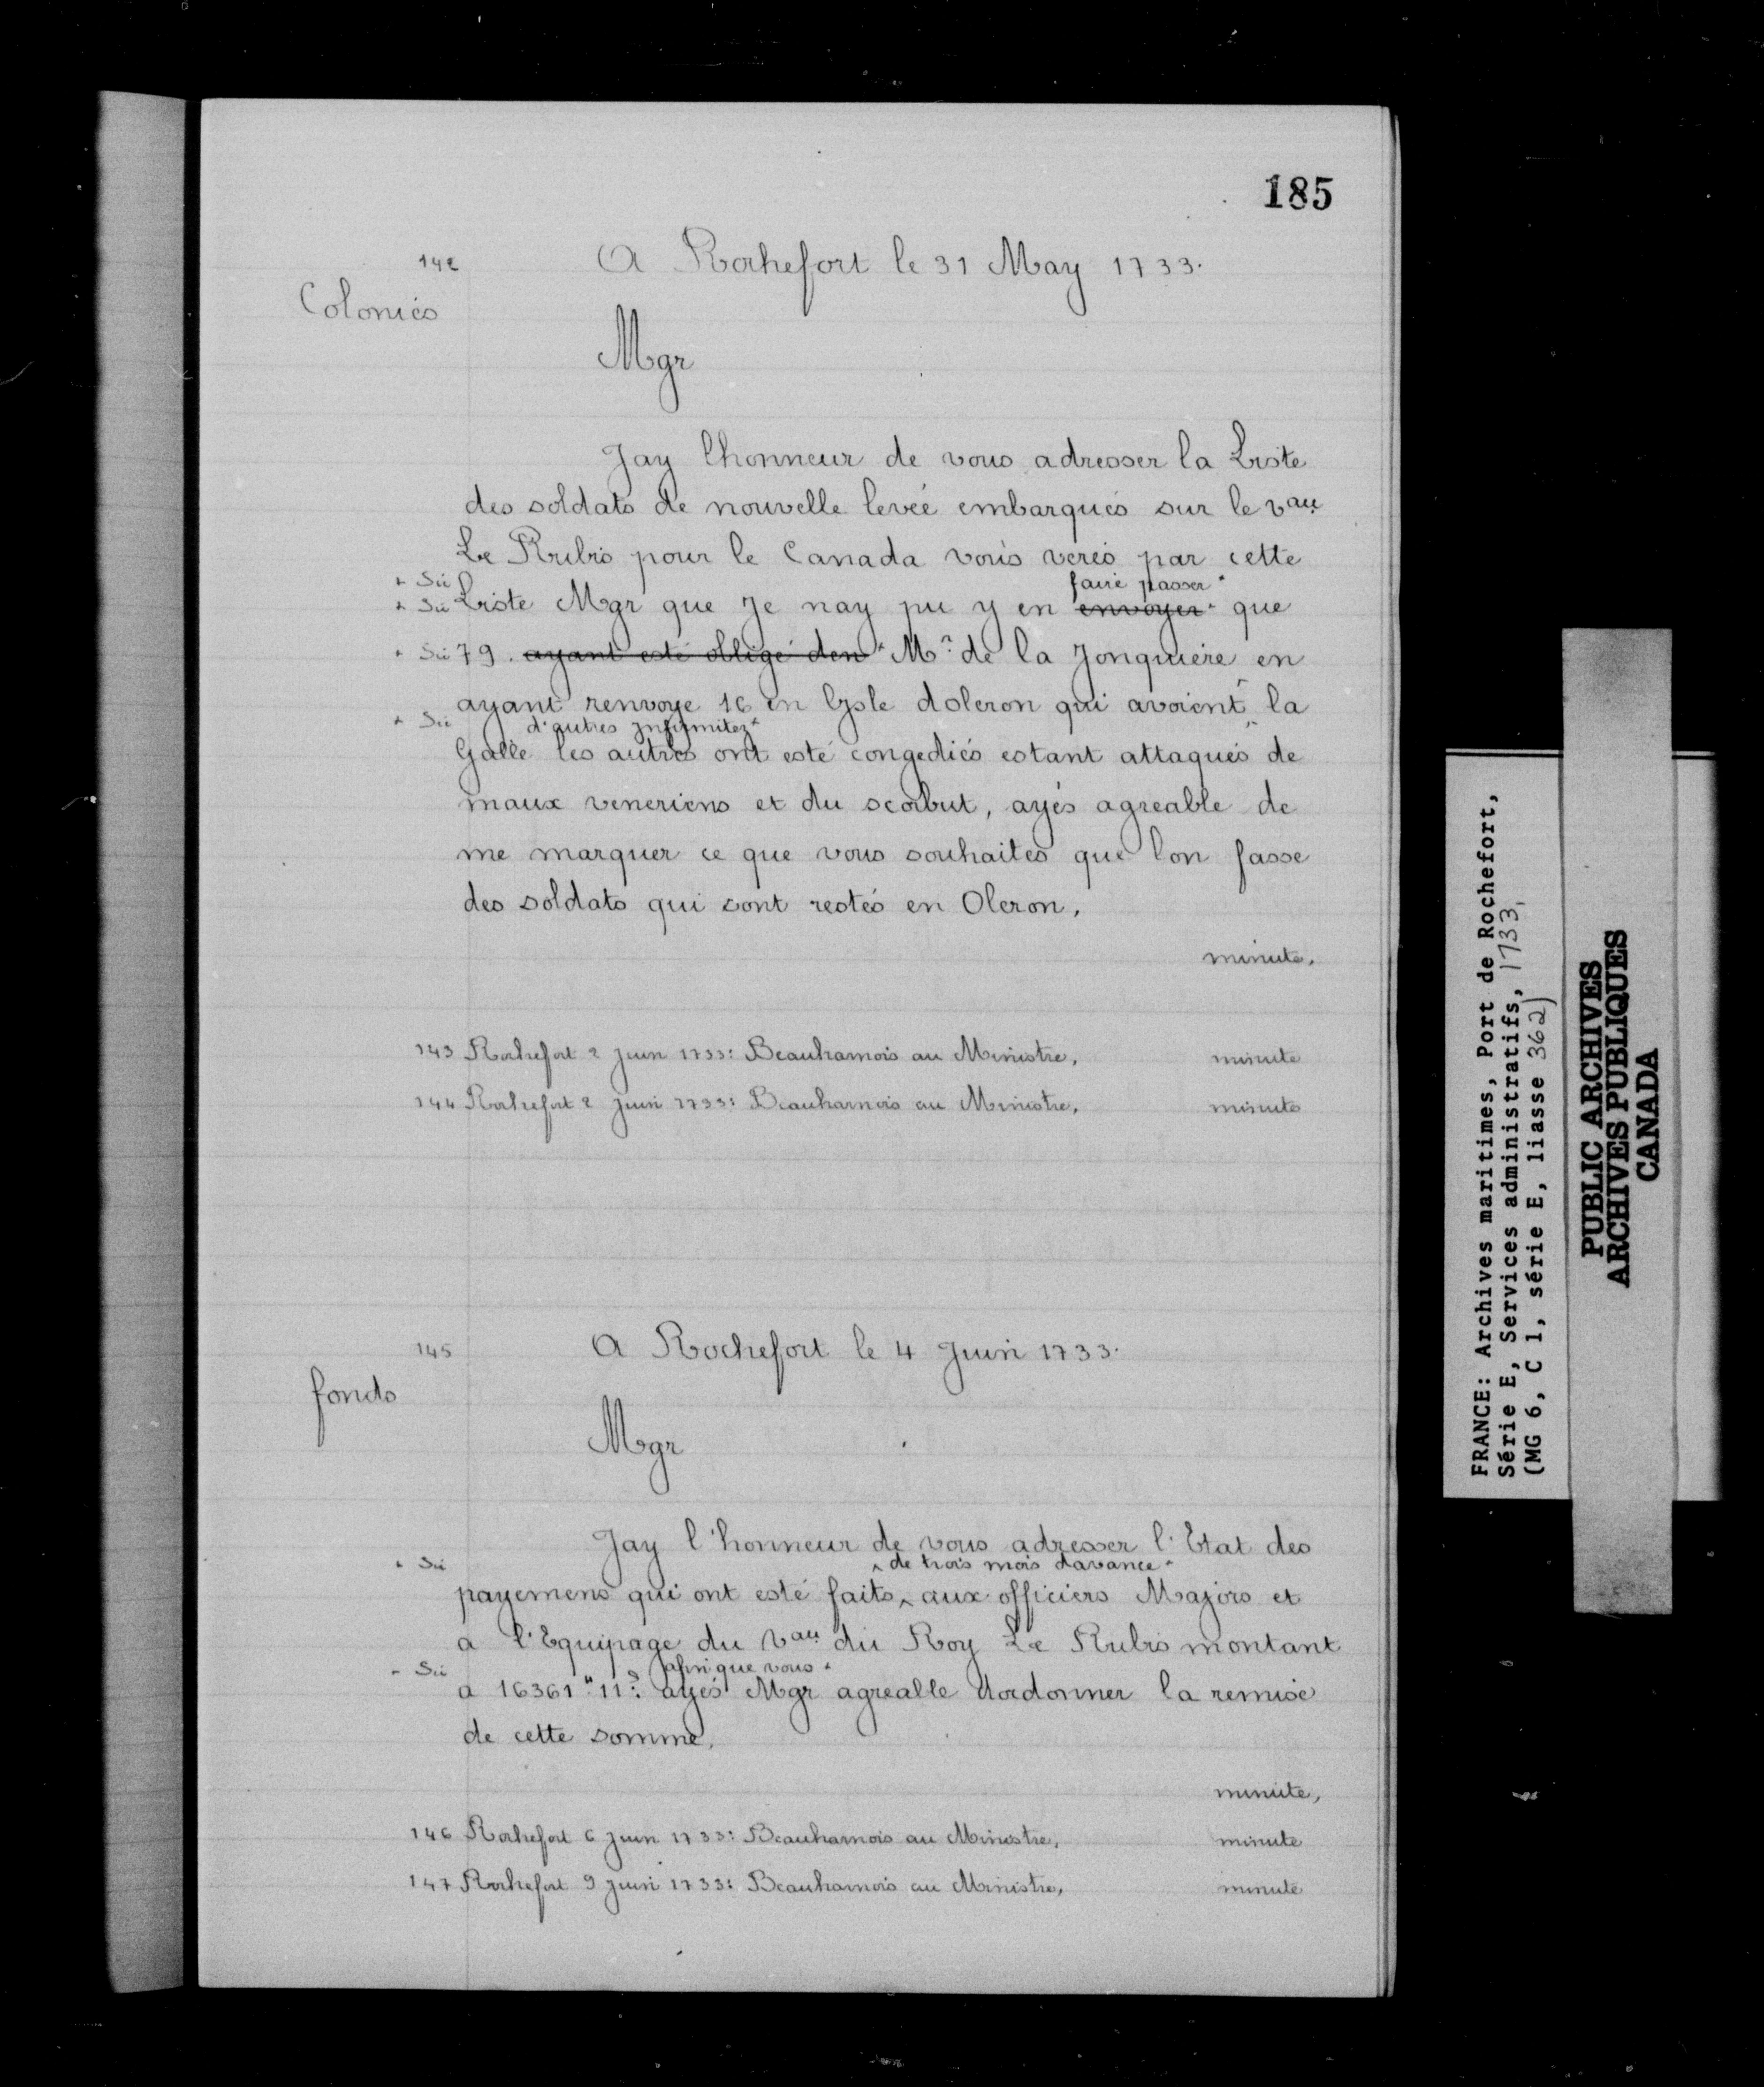 185
142
A Rochefort le 31 May 1733.
Colonies
Mgr
Jay lhonneur de vous adresser la Liste
des soldats de nouvelle leveé embarqués sur le vau
Le Rubis pour le Canada vous verés par cette
+ Sic
faire passer +
+ Sic Liste Mgr que Je nay pu y en envoyer + que
+ Sic 79. ayant esté obligé den + Mr de la Jonquiere en
ayant renvoye 16 en Isle doleron qui avoient ^ la
+ Sic d'autres Infirmitez +
Galle les autres ont esté congediés estant attaqués de
maux veneriens et du scorbut, ayés agreable de
me marquer ce que vous souhaites que lon fasse
des soldats qui sont restés en Oleron.
minute.
143 Rochefort 2 Juin 1733: Beauharnois au Ministre, minute
144 Rochefort 2 Juin 1733: Beauharnois au Ministre, minute
145
A Rochefort le 4 Juin 1733.
fonds
Mgr
Jay l'honneur de vous adresser l'Etat des
+ Sic ^ de trois mois davance +
payemens qui ont esté faits ^ aux officiers Majors et
a l'Equipage du Vau du Roy Le Rubis montant
+ Sic afin que vous +
a 16361" 11s. ayés Mgr agreable dordonner la remise
de cette somme.
minute,
146 Rochefort 6 Juin 1733: Beauharnois au Ministre, minute
147 Rochefort 9 Juin 1733: Beauharnois au Ministre, minute
FRANCE: Archives maritimes, Port de Rochefort,
Série E, Services administratifs, 1733,
(MG 6, C 1, série E, liasse 362)
PUBLIC ARCHIVES
ARCHIVES PUBLIQUES
CANADA